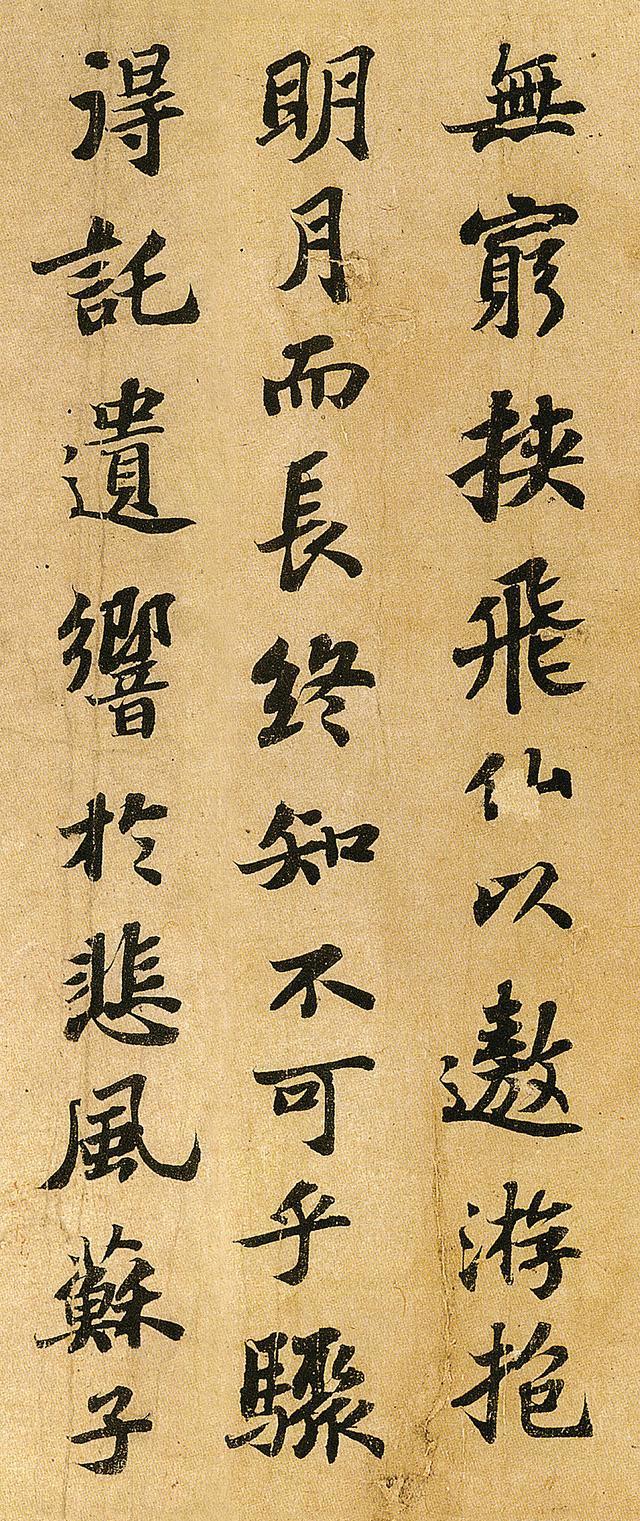 無窮挾飛仙以遨游抱
明月而長終知不可乎驟
得託遺響於悲風蘇子